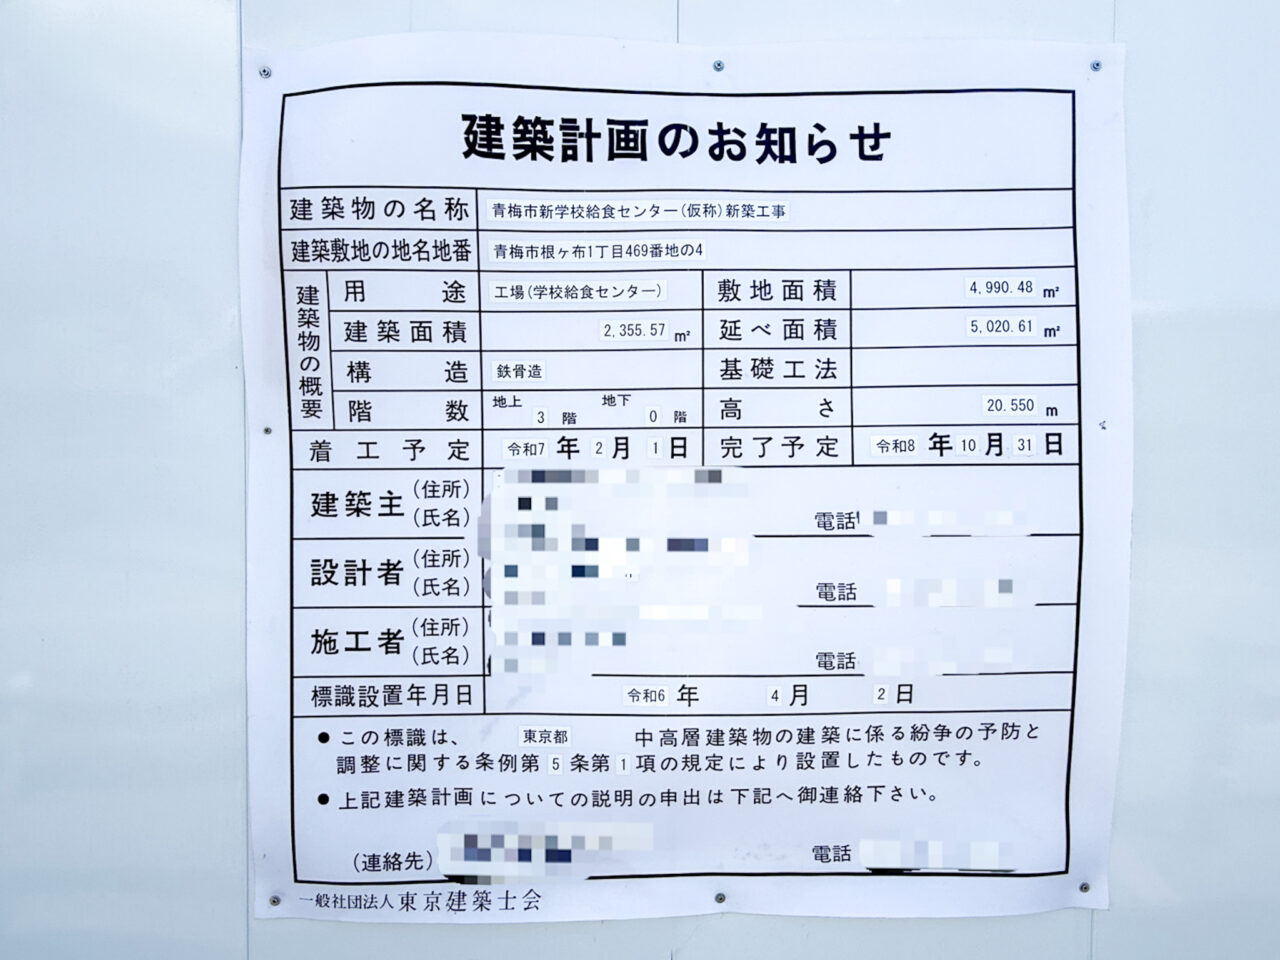 建築計画のお知らせ
建築物の名称 青梅市新学校給食センター(仮称)新築工事
建築敷地の地名地番 青梅市根ヶ布1丁目469番地の4
建築物の概要
用途 工場(学校給食センター) 敷地面積 4,990.48 m²
建築面積 2,355.57 m² 延べ面積 5,020.61 m²
構造 鉄骨造 基礎工法
階数 地上 3 階 地下 0 階 高さ 20.550 m
着工予定 令和7年2月1日 完了予定 令和8年10月31日
建築主 (住所)
(氏名) 電話
設計者 (住所)
(氏名) 電話
施工者 (住所)
(氏名) 電話
標識設置年月日 令和6年4月2日
●この標識は、東京都 中高層建築物の建築に係る紛争の予防と
調整に関する条例第5条第1項の規定により設置したものです。
●上記建築計画についての説明の申出は下記へ御連絡下さい。
(連絡先) 電話
一般社団法人 東京建築士会